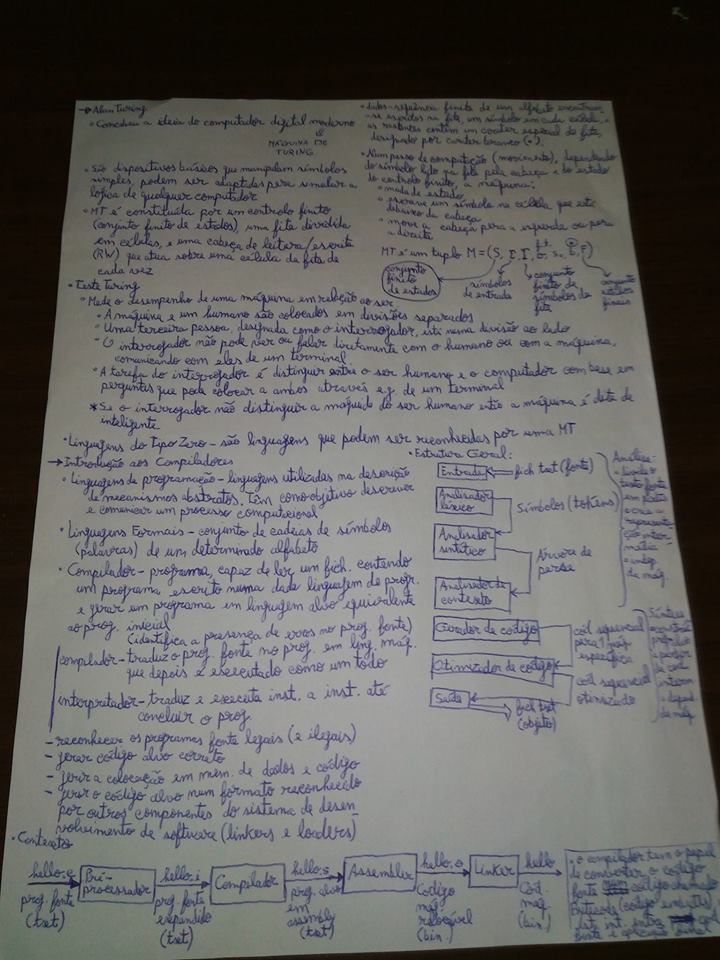 → Alan Turing
• Concebeu a ideia do computador digital moderno
MÁQUINA DE
TURING
• São dispositivos básicos que manipulam símbolos
simples, podem ser adaptadas para simular a
lógica de qualquer computador
• MT é constituída por um controlo finito
(conjunto finito de estados), uma fita dividida
em células, e uma cabeça de leitura/escrita
(RW) que atua sobre uma célula da fita de
cada vez
• dados - sequência finita de um alfabeto encontram
-se escritos na fita, um símbolo em cada célula, e
as restantes contêm um caráter especial da fita,
designado por caráter branco (•).
• Num passo de computação (movimento), dependendo
do símbolo lido na fita pela cabeça e do estado
do controlo finito, a máquina:
• muda de estado
• escreve um símbolo na célula que está
debaixo da cabeça
• move a cabeça para a esquerda ou para
a direita
MT é um tuplo M = (S, Σ, Γ,
conjunto
finito
de estados
símbolos
de entrada
conjunto
finito de
símbolos de
fita
conjunto
estados
finais
• Teste Turing
• Mede o desempenho de uma máquina em relação ao ser.
• A máquina e um humano são colocados em divisões separados
• Uma terceira pessoa, designada como o interrogador, está numa divisão ao lado
• O interrogador não pode ver ou falar diretamente com o humano ou com a máquina,
comunicando com eles de um terminal
• A tarefa do interrogador é distinguir entre o ser humano e o computador com base em
perguntas que pode colocar a ambos através e.g. de um terminal
* Se o interrogador não distinguir a máquina do ser humano então a máquina é dita de
inteligente
• Linguagens do Tipo Zero - são linguagens que podem ser reconhecidas por uma MT
→ Introdução aos Compiladores
• Linguagens de programação - linguagens utilizadas na descrição
de mecanismos abstratos. Têm como objetivo descrever
e comunicar um processo computacional
• Linguagens Formais - conjunto de cadeias de símbolos
(palavras) de um determinado alfabeto
• Compilador - programa, capaz de ler um fich. contendo
um programa escrito numa dada linguagem de progr.
e gerar um programa em linguagem alvo equivalente
ao prog. inicial
(identifica a presença de erros no prog. fonte)
compilador - traduz o prog. fonte no prog. em ling. máq.
que depois é executado como um todo
interpretador - traduz e executa inst. a inst. até
concluir o prog.
- reconhecer os programas fonte legais (e ilegais)
- gerar código alvo correto
- gerir a colocação em mem. de dados e código
- gerar o código alvo num formato reconhecido
por outros componentes do sistema de desen-
volvimento de software (linkers e loaders)
• Estrutura Geral:
Entrada
fich text (fonte)
Analisador
léxico
Símbolos (tokens)
Analisador
sintático
Árvore de
parse
Analisador de
contexto
Gerador de código
cód. sequencial
para 1 máq.
específica
Otimizador de código
cód. sequencial
otimizado
Saída
fich text
(objeto)
Análise:
• divide o
texto fonte
em partes
e cria a
represent
ação inter
média
• indep.
da máq.
Síntese
constrói
a partir
• depend.
da máq.
• Contexto
hello.c
prog. fonte
(text)
Pré-
processador
hello.i
prog. fonte
expandido
(text)
Compilador
hello.s
prog. alvo
em
assembly
(text)
Assembler
hello.o
Código
máq.
relocável
(bin.)
Linker
hello
Cód.
máq.
(bin.)
• o compilador tem o papel
de converter o código
fonte código chamado
Bytecode (código